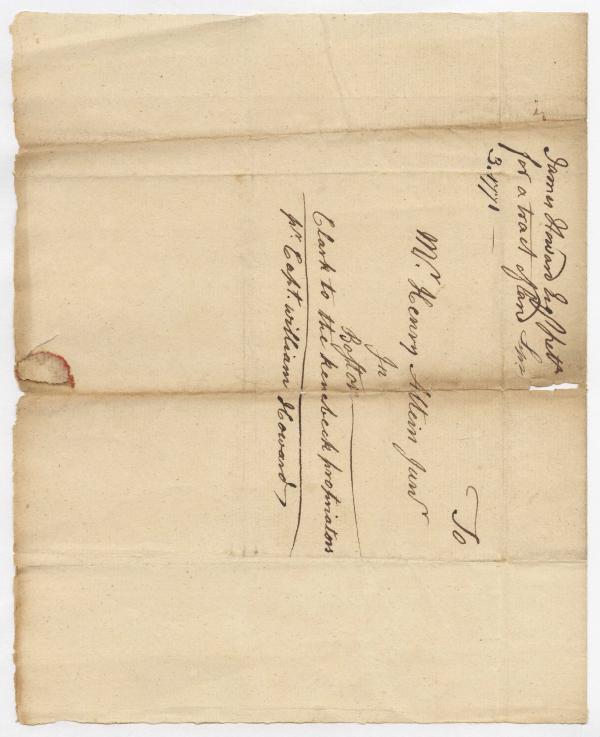 James Howard Esq Pettn
for a tract of land Sepr
3. 1771
To
Mr Henry Allein Junr
In
Boston
Clark to the Kenebeck propriators
pr Capt. william Howard